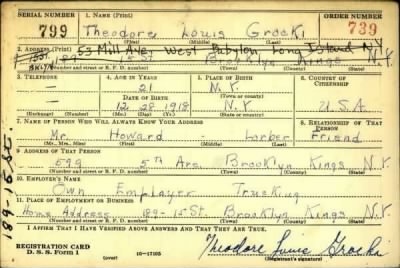 SERIAL NUMBER 1. NAME (Print) ORDER NUMBER
799 Theodore Louis Grocki 739
(First) (Middle) (Last)
2. ADDRESS (Print) 53 Mill Ave, West Babylon, Long Island N.Y.
189 - 15 St. Brooklyn Kings N.Y.
BKLYN (Number and street or R. F. D. number) (Town) (County) (State)
3. TELEPHONE 4. AGE IN YEARS 5. PLACE OF BIRTH 6. COUNTRY OF CITIZENSHIP
— 21 N.Y.
DATE OF BIRTH (Town or county)
— 12 28 1918 N.Y. U.S.A
(Exchange) (Number) (Mo.) (Day) (Yr.) (State or country)
7. NAME OF PERSON WHO WILL ALWAYS KNOW YOUR ADDRESS 8. RELATIONSHIP OF THAT PERSON
Mr. Howard - Lorber Friend
(Mr., Mrs., Miss) (First) (Middle) (Last)
9. ADDRESS OF THAT PERSON
599 5th Ave. Brooklyn Kings N.Y.
(Number and street or R. F. D. number) (Town) (County) (State)
10. EMPLOYER'S NAME
Own Employer Trucking
11. PLACE OF EMPLOYMENT OR BUSINESS
Home Address 189-15 St. Brooklyn Kings N.Y.
(Number and street or R. F. D. number) (Town) (County) (State)
I AFFIRM THAT I HAVE VERIFIED ABOVE ANSWERS AND THAT THEY ARE TRUE.
REGISTRATION CARD
D. S. S. Form 1 (over) 16—17105 Theodore Louis Grocki
(Registrant's signature)
189-15 St.